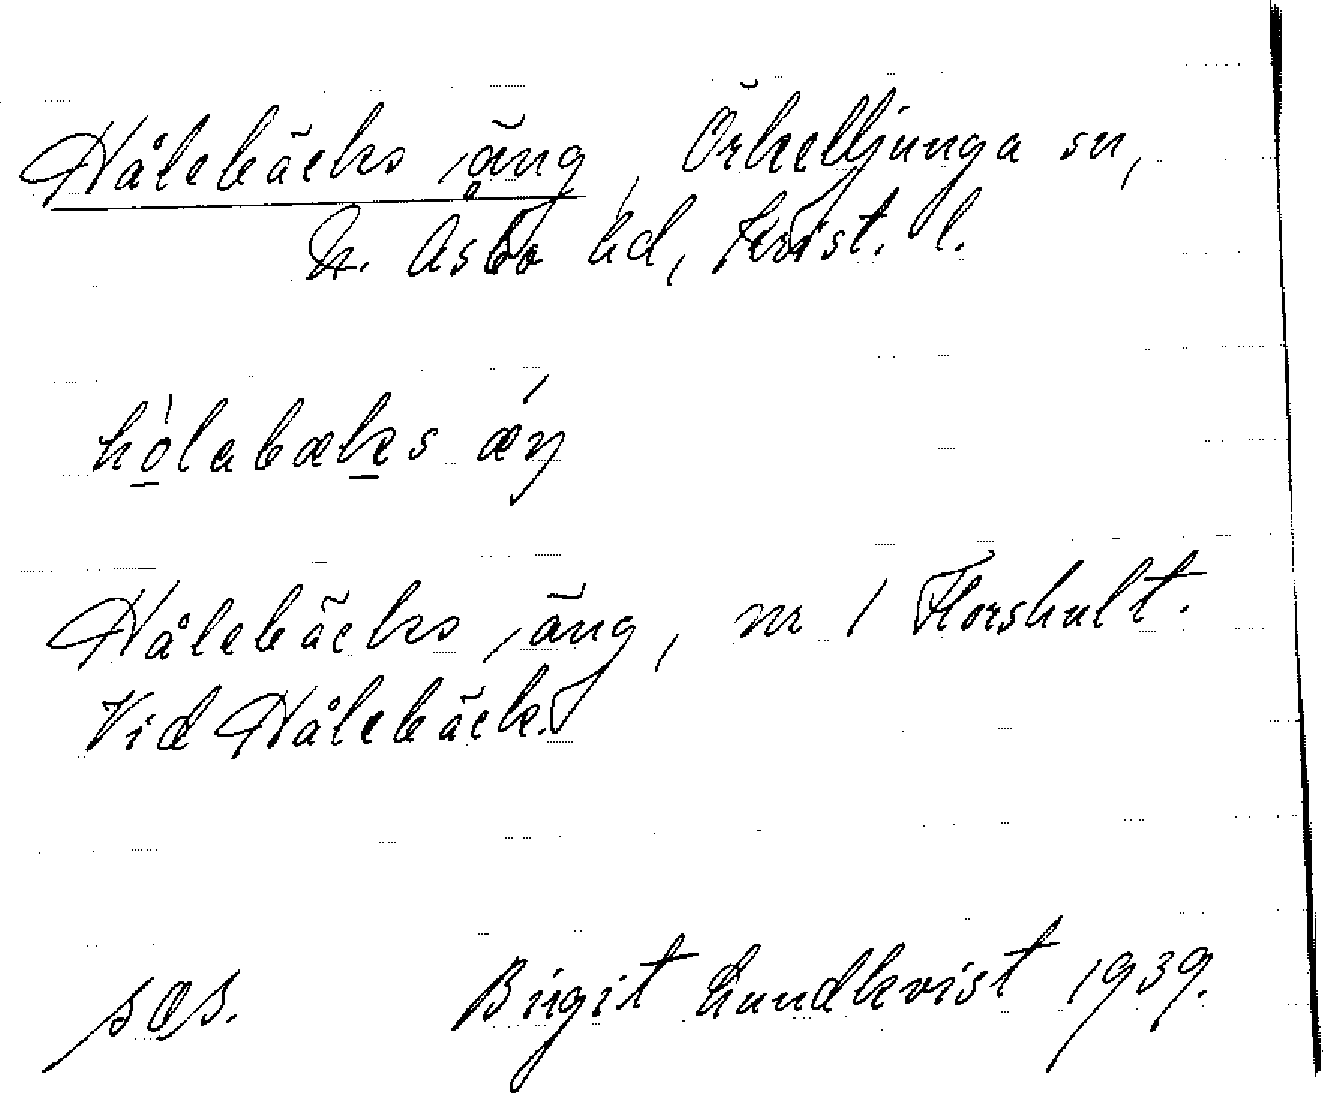 Hålebäcks äng, Örkelljunga sn,
N. Åsbo hd, Krist. l.
hò̱labæḵs ǽŋ
Hålebäcks äng, nr 1 Florshult.
Vid Hålebäck.
sas. Birgit Lundkvist 1939.